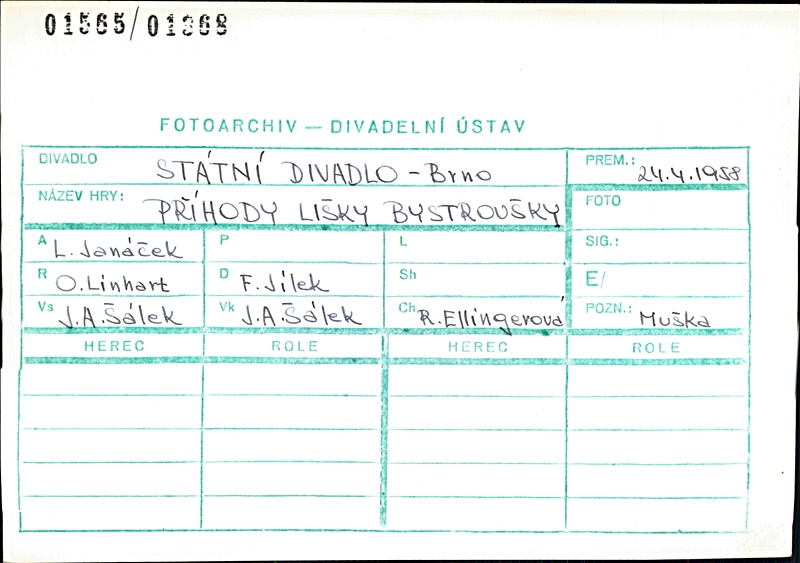 01565/01368
FOTOARCHIV — DIVADELNÍ ÚSTAV
DIVADLO STÁTNÍ DIVADLO - Brno PREM.: 24.4.1958
NÁZEV HRY: PŘÍHODY LIŠKY BYSTROUŠKY FOTO
A L. Janáček P L SIG.:
R O. Linhart D F. Jílek Sh E/
Vs J.A. Šálek Vk J.A. Šálek Ch R. Ellingerová POZN.: Muška
HEREC ROLE HEREC ROLE